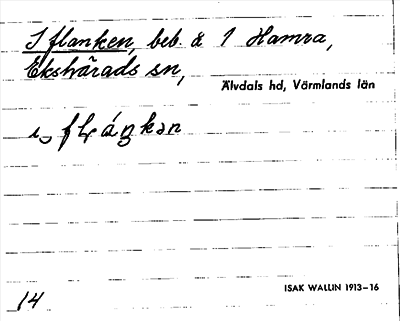 I flanken, beb. å 1 Hamra,
Ekshärads sn,
Älvdals hd, Värmlands län
ISAK WALLIN 1913–16
14